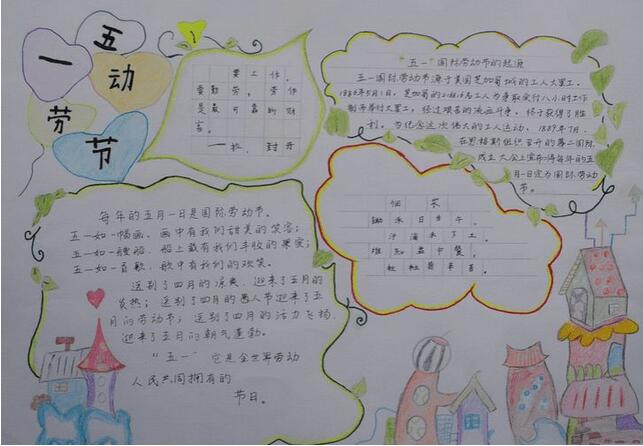 五
一 动
劳 节
要工作，
要勤劳，劳作
是最可靠的财
富。
—拉、封丹
"五一"国际劳动节的起源
五一国际劳动节源于美国芝加哥城的工人大罢工。
1886年5月1日，芝加哥的216000名工人为争取实行八小时工作
制而举行大罢工，经过艰苦的流血斗争，终于获得了胜
利。为纪念这次伟大的工人运动，1889年7月
在恩格斯组织召开的第二国际
成立大会上宣布将每年的五
月一日定为国际劳动
节。
悯农
锄禾日当午，
汗滴禾下土。
谁知盘中餐，
粒粒皆辛苦。
每年的五月一日是国际劳动节。
五一如一幅画，画中有我们甜美的笑容；
五一如一艘船，船上载有我们丰收的果实；
五一如一首歌，歌中有我们的欢笑。
送别了四月的凉爽，迎来了五月的
炎热；送别了四月的愚人节迎来了五
月的劳动节；送别了四月的活力飞扬，
迎来了五月的朝气蓬勃。
"五一"它是全世界劳动
人民共同拥有的
节日。